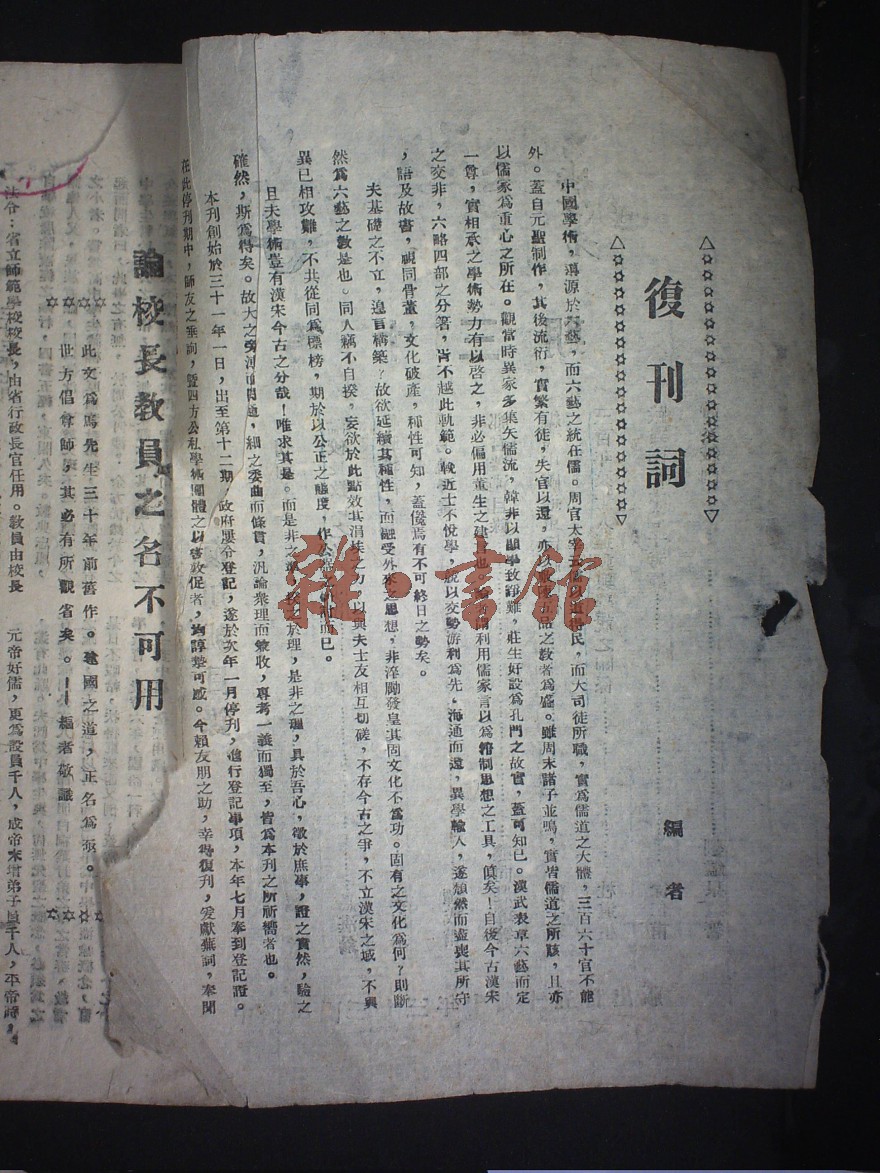 復刊詞
編者
中國學術，濬源於六藝，而六藝之統在儒。周官太宰云儒以道得民，而大司徒所職，實爲儒道之大體，三百六十官不能
外。蓋自元聖制作，其後流衍，實繁有徒，失官以還，亦以 之敎者爲盛。雖周末諸子並鳴，實皆儒道之所該，且亦
以儒家爲重心之所在。觀當時異家多集矢儒流，韓非以顯學致諍難，莊生好設爲孔門之故實，蓋可知已。漢武表章六藝而定
一尊，實相承之學術勢力有以啓之，非必偏用董生之建言也。 利用儒家言以爲箝制思想之工具，傎矣！自後今古漢宋
之交非，六略四部之分署，胥不越此軌範。輓近士不悅學，競以交勢游利爲先，海通而還，異學輸人，遂頹然而盡喪其所守
，語及故書，視同骨董，文化破產，種性可知，蓋儳焉有不可終日之勢矣。
夫基礎之不立，遑言構築？故欲延續其種性，而融受外來之思想，非淬勵發皇其固文化不爲功。固有之文化爲何？則斷
然爲六藝之敎是也。同人竊不自揆，妄欲於此點效其涓埃之力，以與夫士友相互切磋，不存今古之爭，不立漢宋之域，不與
異已相攻難，不共從同爲標榜，期於以公正之態度，作 而已。
且夫學術豈有漢宋今古之分哉！唯求其是。而是非之 於理，是非之理，具於吾心，徵於庶事，證之實然，驗之
確然，斯爲得矣。故大之 ，細之委曲而條貫，汎論衆理而兼收，專考一義而獨至，皆爲本刊之所祈嚮者也。
本刊創始於三十一年一日，出至第十二期，政府屢令登記，遂於次年一月停刊，進行登記事項，本年七月奉到登記證。
在此停刊期中，師友之垂詢，曁四方公私學術團體之以書敦促者，均諄摯可感。今賴友朋之助，幸得復刊，爰獻蕪詞，奉聞
論校長敎員之名不可用
此文爲 先生三十年前舊作。建國之道，正名爲亟。
世方倡尊師，其必有所觀省矣。——編者敬識
法令：省立師範學校校長，由省行政長官任用。敎員由校長
元帝好儒，更爲設員千人，成帝末增弟子員千人，平帝時，
雜·書館